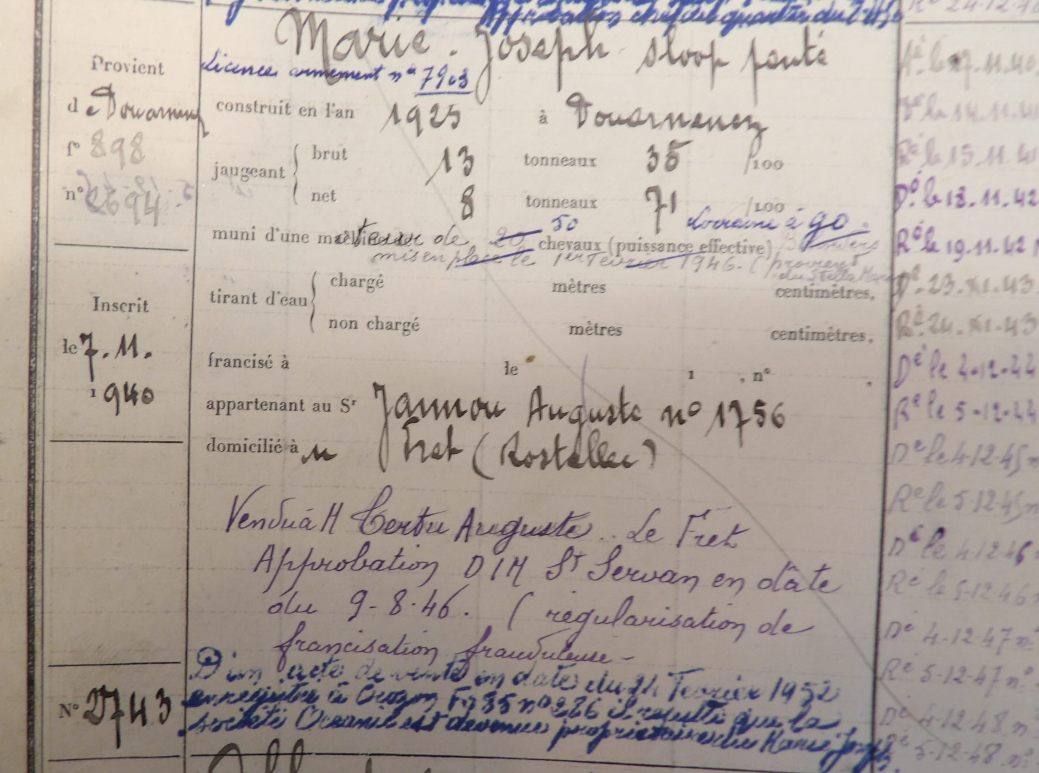 Approbation chef du quartier du
Marie-Joseph sloop ponté
Licence armement n° 7903
Provient
de Douarnenez
f° 898
n° 2694
construit en l'an 1925 à Douarnenez
jaugeant
brut 13 tonneaux 38 /100
net 8 tonneaux 71 /100
muni d'une moteur de 20 50 chevaux (puissance effective) Lorraine à 90
mis en place le 1er février 1946. (provient
du Stella Maris
tirant d'eau
chargé mètres centimètres,
non chargé mètres centimètres,
Inscrit
le 7.11.
1940
francisé à le 1 , n° .
appartenant au Sr Jannou Auguste n° 1756
domicilié à Fret (Rostellec)
Vendu à M Certu Auguste.. Le Fret
Approbation DIM St Servan en date
du 9-8-46. (régularisation de
francisation frauduleuse-
D'un acte de vente en date du 21 Février 1952
enregistré à Crozon F° 85 n° 286 il résulte que la
société est devenue propriétaire du Marie Joseph
N° 2743
24-12-40
le 17.11.40
le 14.11.41
Ré le 15.11.41
Dé le 18.11.42
Ré le 19.11.42
Dé 23.XI.43
Ré 24.XI.43
Dé le 4-12-44
Ré le 5-12-44
Dé le 4-12-45
Ré le 5-12-45
Dé le 4-12-46
Ré le 5-12-46
Dé 4-12-47 n°
Ré 5-12-47 n°
Dé 4-12-48 n°
Ré 5-12-48 n°